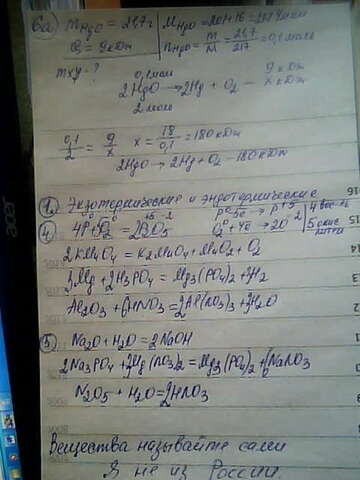 6a) mHgO = 21,7г
Q = 9кДж
MHgO = 201+16 = 217 г/моль
nHgO = m/M = 21,7/217 = 0,1 моль
тху - ?
0,1 моль 9 кДж
2HgO → 2Hg + O2 - x кДж
2 моль
0,1/2 = 9/x x = 18/0,1 = 180 кДж
2HgO → 2Hg + O2 - 180 кДж
1. Экзотермические и эндотермические
4. 4P + 5O2 = 2P2O5
P - 5e → P+5 | 4 вос-ль
O2 + 4e → 2O-2 | 5 окис литель
2KMnO4 = K2MnO4 + MnO2 + O2
3Mg + 2H3PO4 = Mg3(PO4)2 + 3H2
Al2O3 + 6HNO3 = 2Al(NO3)3 + 3H2O
5. Na2O + H2O = 2NaOH
2Na3PO4 + 3Mg(NO3)2 = Mg3(PO4)2 + 6NaNO3
N2O5 + H2O = 2HNO3
Вещества называйте сами
Я не из России
acer
16
15
14